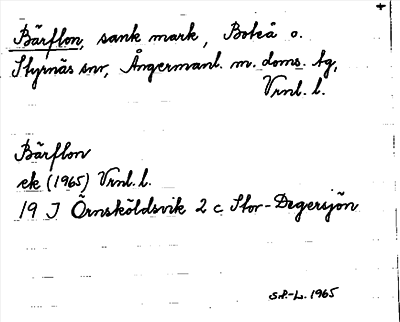 Bärflon, sank mark, Boteå o.
Styrnäs snr, Ångermanl. m. doms. tg,
Vrnl. l.
Bärflon
ek (1965) Vrnl. l.
19 J Örnsköldsvik 2 c Stor-Degersjön
S.P.-L. 1965